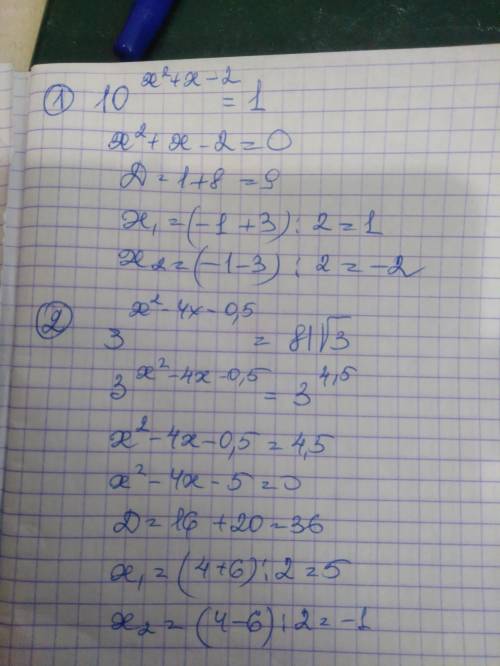 ① 10^(x²+x-2) = 1
x²+x-2=0
Д=1+8=9
x₁=(-1+3):2=1
x₂=(-1-3):2=-2
② 3^(x²-4x-0,5) = 81√3
3^(x²-4x-0,5) = 3^4,5
x²-4x-0,5=4,5
x²-4x-5=0
Д=16+20=36
x₁=(4+6):2=5
x₂=(4-6):2=-1